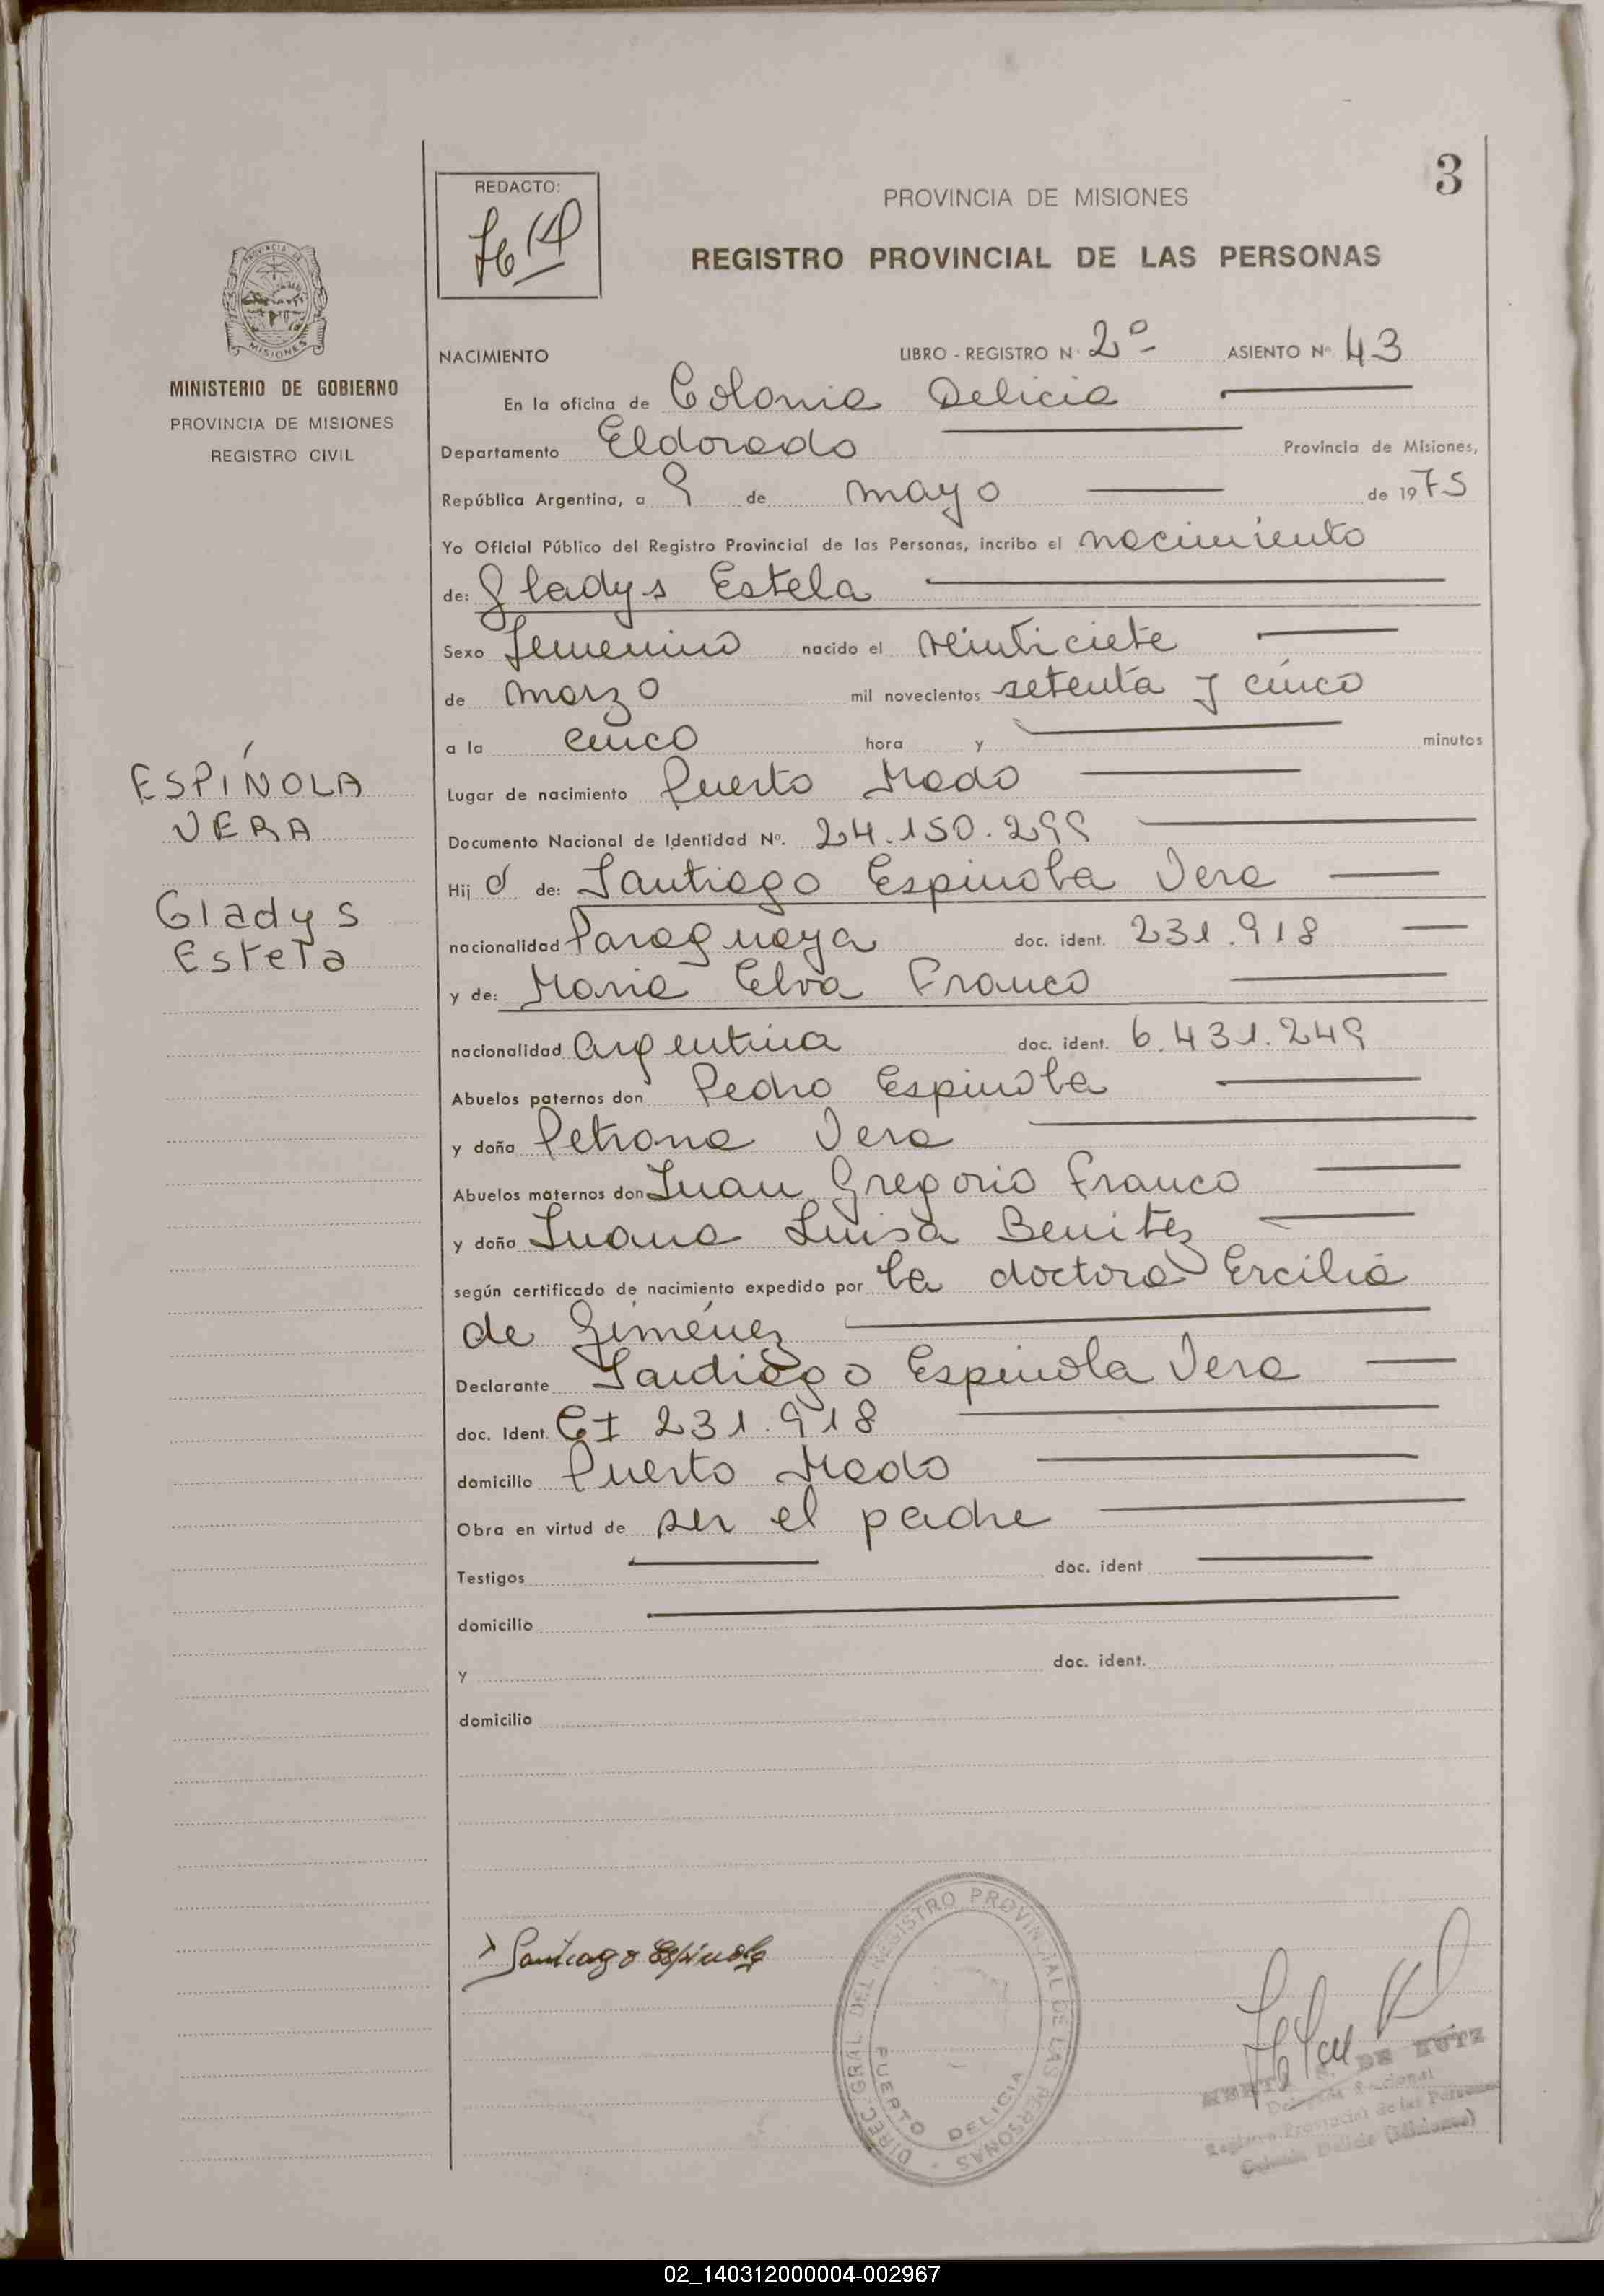 3
REDACTO:
PROVINCIA DE MISIONES
REGISTRO PROVINCIAL DE LAS PERSONAS
PROVINCIA DE
MISIONES
MINISTERIO DE GOBIERNO
PROVINCIA DE MISIONES
REGISTRO CIVIL
ESPÍNOLA
VERA
Gladys
Estela
NACIMIENTO LIBRO - REGISTRO N° 2º ASIENTO Nº 43
En la oficina de Colonia Delicia
Departamento Eldorado Provincia de Misiones,
República Argentina, a 9 de mayo de 1975
Yo Oficial Público del Registro Provincial de las Personas, incribo el nacimiento
de: Gladys Estela
Sexo Femenino nacido el veinticiete
de marzo mil novecientos setenta y cinco
a la cinco hora y minutos
Lugar de nacimiento Puerto Mado
Documento Nacional de Identidad Nº. 24.150.299
Hij a de: Santiago Espinola Vera
nacionalidad Paraguaya doc. ident. 231.918
y de: Maria Elva Franco
nacionalidad argentina doc. ident. 6.431.249
Abuelos paternos don Pedro Espinola
y doña Petrona Vera
Abuelos maternos don Juan Gregorio Franco
y doña Juana Luisa Benitez
según certificado de nacimiento expedido por la doctora Ercilia
de Giménez
Declarante Santiago Espinola Vera
doc. Ident. CI 231.918
domicilio Puerto Mado
Obra en virtud de ser el padre
Testigos doc. ident
domicilio
y doc. ident.
domicilio
Santiago Espinola
DIREC. GRAL. DEL REGISTRO PROVINCIAL DE LAS PERSONAS
PUERTO DELICIA
DE
Registro Provincial de las Personas
Colonia Delicia (Misiones)
02_140312000004-002967